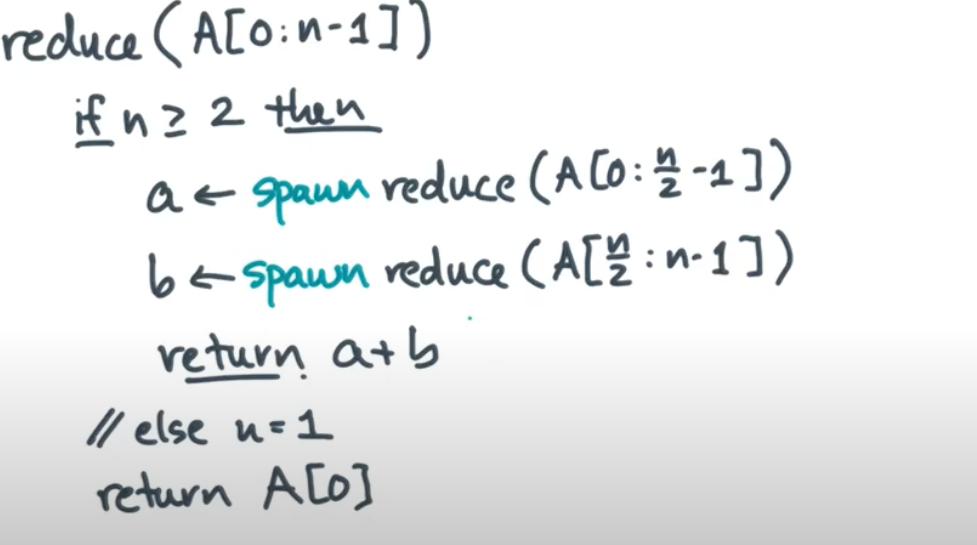 reduce (A[0:n-1])
if n ≥ 2 then
a ← spawn reduce (A[0: n/2 -1])
b ← spawn reduce (A[n/2 : n-1])
return a+b
// else n=1
return A[0]